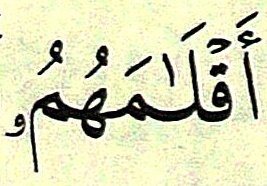 أَقۡلَٰمَهُمُۥ